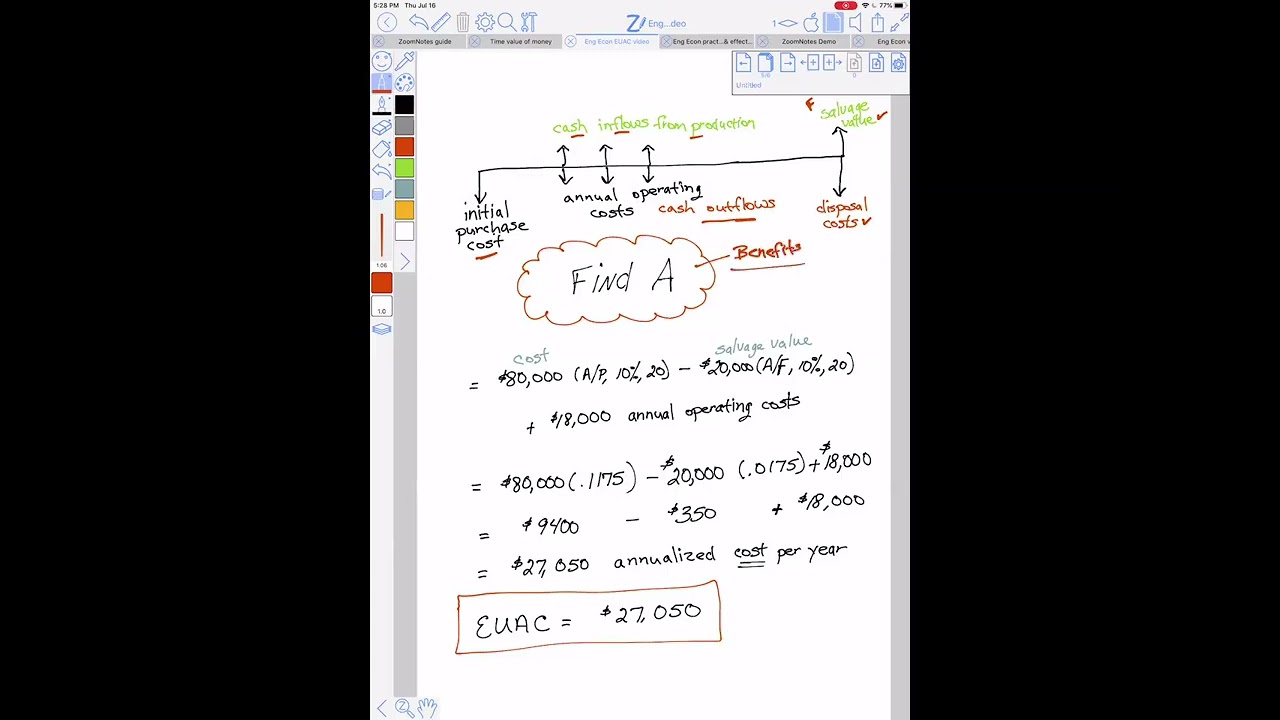 5:28 PM Thu Jul 16
77%
Eng...deo
1
ZoomNotes guide
Time value of money
Eng Econ EUAC video
Eng Econ pract...& effect...
ZoomNotes Demo
Eng Econ v
5/6
0
Untitled
F salvage value ✓
cash inflows from production
annual operating costs
cash outflows
initial purchase cost
disposal costs ✓
Find A
Benefits
1.06
1.0
cost
salvage value
= $80,000 (A/P, 10%, 20) - $20,000 (A/F, 10%, 20)
+ $18,000 annual operating costs
= $80,000 (.1175) - $20,000 (.0175) + $18,000
= $9400 - $350 + $18,000
= $27,050 annualized cost per year
EUAC = $27,050